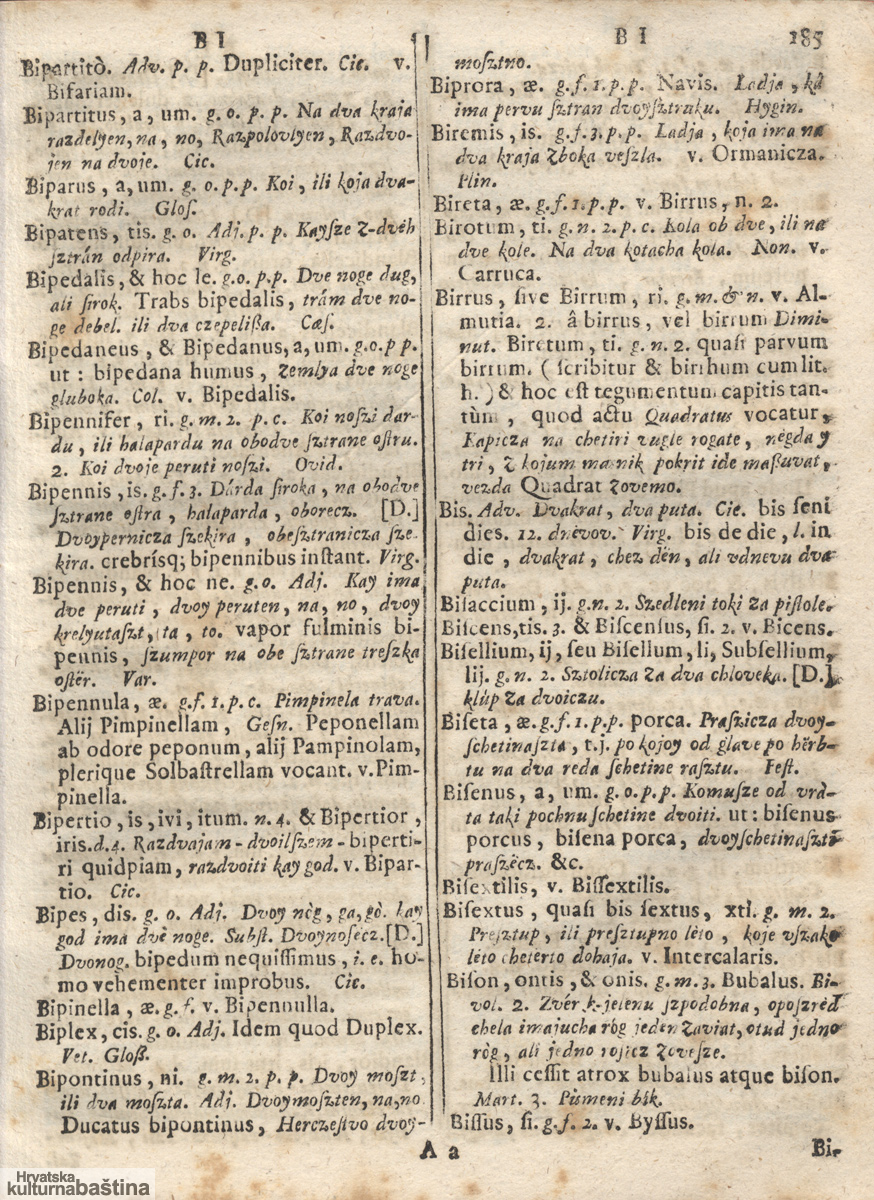 B I
Bipartitò. Adv. p. p. Dupliciter. Cic. v.
Bifariam.
Bipartitus, a, um. g. o. p. p. Na dva kraja
razdelyen, na, no, Razpolovlyen, Razdvo-
jen na dvoje. Cic.
Biparus, a, um. g. o. p. p. Koi, ili koja dva-
krat rodi. Gloſ.
Bipatens, tis. g. o. Adj. p. p. Kayſze z-dvéh
ſztrán odpira. Virg.
Bipedalis, & hoc le. g. o. p. p. Dve noge dug,
ali ſirok. Trabs bipedalis, trám dve no-
ge debel. ili dva czepeliſſa. Cæſ.
Bipedaneus, & Bipedanus, a, um. g. o. p p.
ut: bipedana humus, Zemlya dve noge
gluboka. Col. v. Bipedalis.
Bipennifer, ri. g. m. 2. p. c. Koi noſzi dar-
du, ili halapardu na obodve ſztrane oſtru.
2. Koi dvoje peruti noſzi. Ovid.
Bipennis, is. g. f. 3. Dárda ſiroka, na obodve
ſztrane oſtra, halaparda, oborecz. [D.]
Dvoypernicza ſzekira, obeſztranicza ſze-
kira. crebríſq; bipennibus inſtant. Virg.
Bipennis, & hoc ne. g. o. Adj. Kay ima
dve peruti, dvoy peruten, na, no, dvoy
krelyutaſzt, ta, to. vapor fulminis bi-
pennis, ſzumpor na obe ſztrane treſzka
oſtër. Var.
Bipennula, æ. g. f. 1. p. c. Pimpinela trava.
Alij Pimpinellam, Geſn. Peponellam
ab odore peponum, alij Pampinolam,
plerique Solbaſtrellam vocant. v. Pim-
pinella.
Bipertio, is, ivi, itum. n. 4. & Bipertior,
iris. d. 4. Razdvajam - dvoilſzem - biperti-
ri quidpiam, razdvoiti kay god. v. Bipar-
tio. Cic.
Bipes, dis. g. o. Adj. Dvoy nòg, ga, gò. kay
god ima dvè noge. Subſt. Dvoynoſécz. [D.]
Dvonog. bipedum nequiſſimus, i. e. ho-
mo vehementer improbus. Cic.
Bipinella, æ. g. f. v. Bipennulla.
Biplex, cis. g. o. Adj. Idem quod Duplex.
Vet. Gloß.
Bipontinus, ni. g. m. 2. p. p. Dvoy moſzt,
ili dva moſzta. Adj. Dvoymoſzten, na, no
Ducatus bipontinus, Herczeſtvo dvoy-
B I 185
moſztno.
Biprora, æ. g. f. 1. p. p. Navis. Ladja, ká
ima pervu ſztran dvoyſztruku. Hygin.
Biremis, is. g. f. 3. p. p. Ladja, koja ima na
dva kraja zboka veſzla. v. Ormanicza.
Plin.
Bireta, æ. g. f. 1. p. p. v. Birrus, n. 2.
Birotum, ti. g. n. 2. p. c. Kola ob dve, ili na
dve kole. Na dva kotacha kola. Non. v.
Carruca.
Birrus, ſive Birrum, ri. g. m. & n. v. Al-
mutia. 2. â birrus, vel birrum Dimi-
nut. Biretum, ti. g. n. 2. quaſi parvum
birrum. (ſcribitur & birrhum cum lit.
h.) & hoc eſt tegumentum capitis tan-
tùm, quod actu Quadratus vocatur,
Kapicza na chetiri vugle rogate, nègda y
tri, z kojum maſnik pokrit ide maßuvat,
vezda Quadrat zovemo.
Bis. Adv. Dvakrat, dva puta. Cic. bis ſeni
dies. 12. dnévov. Virg. bis de die, l. in
die, dvakrat, chez dën, ali vdnevu dva
puta.
Biſaccium, ij. g. n. 2. Szedleni toki za piſtole.
Biſcens, tis. 3. & Biſcenſus, ſi. 2. v. Bicens.
Biſellium, ij, ſeu Biſellum, li, Subſellium,
lij. g. n. 2. Sztolicza za dva chloveka. [D.]
klùp za dvoiczu.
Biſeta, æ. g. f. 1. p. p. porca. Praſzicza dvoy-
ſchetinaſzta, t. j. po kojoy od glave po hërb-
tu na dva reda ſchetine raſztu. Feſt.
Biſenus, a, um. g. o. p. p. Komuſze od vrá-
ta taki pochnu ſchetine dvoiti. ut: biſenus
porcus, biſena porca, dvoyſchetinaſzti
praſzëcz. &c.
Biſextilis, v. Biſſextilis.
Biſextus, quaſi bis ſextus, xti. g. m. 2.
Preſztup, ili preſztupno lèto, koje vſzako
lèto cheterto dohaja. v. Intercalaris.
Biſon, ontis, & onis. g. m. 3. Bubalus. Bi-
vol. 2. Zvér k-jelenu ſzpodobna, opoſzrèd
chela imajucha ròg jeden zaviat, otud jedno
ròg, ali jedno rosicz zoveſze.
Illi ceſſit atrox bubalus atque biſon.
Mart. 3. Piſmeni bik.
Biſſus, ſi. g. f. 2. v. Byſſus.
A a
Bi-
Hrvatska
kulturnabaština